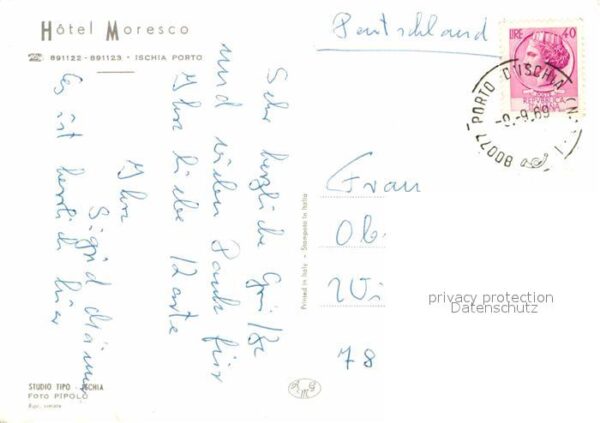 Hôtel Moresco
☎ 891122 - 891123 - ISCHIA PORTO
Sehr herzliche Grüße
und vielen Dank für
Ihre liebe Karte
Ihre
Sigrid
Es ist herrlich hier
Deutschland
LIRE 40
REPVBBLICA
ITALIANA
80077 PORTO D'ISCHIA (N
-9.69
Frau
Ob
Wi
78
Printed in Italy - Stampato in Italia
privacy protection
Datenschutz
STUDIO TIPO - ISCHIA
FOTO PIPOLO
Ripr. vietata